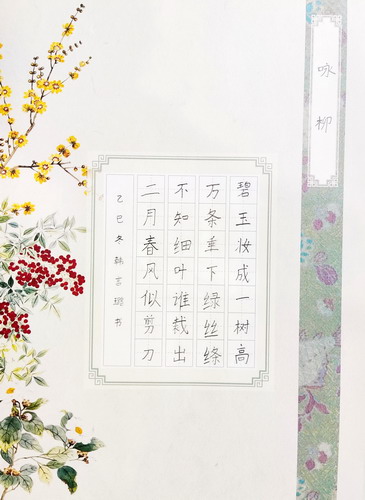 咏柳
碧玉妆成一树高
万条垂下绿丝绦
不知细叶谁裁出
二月春风似剪刀
乙巳冬韩艺璐书